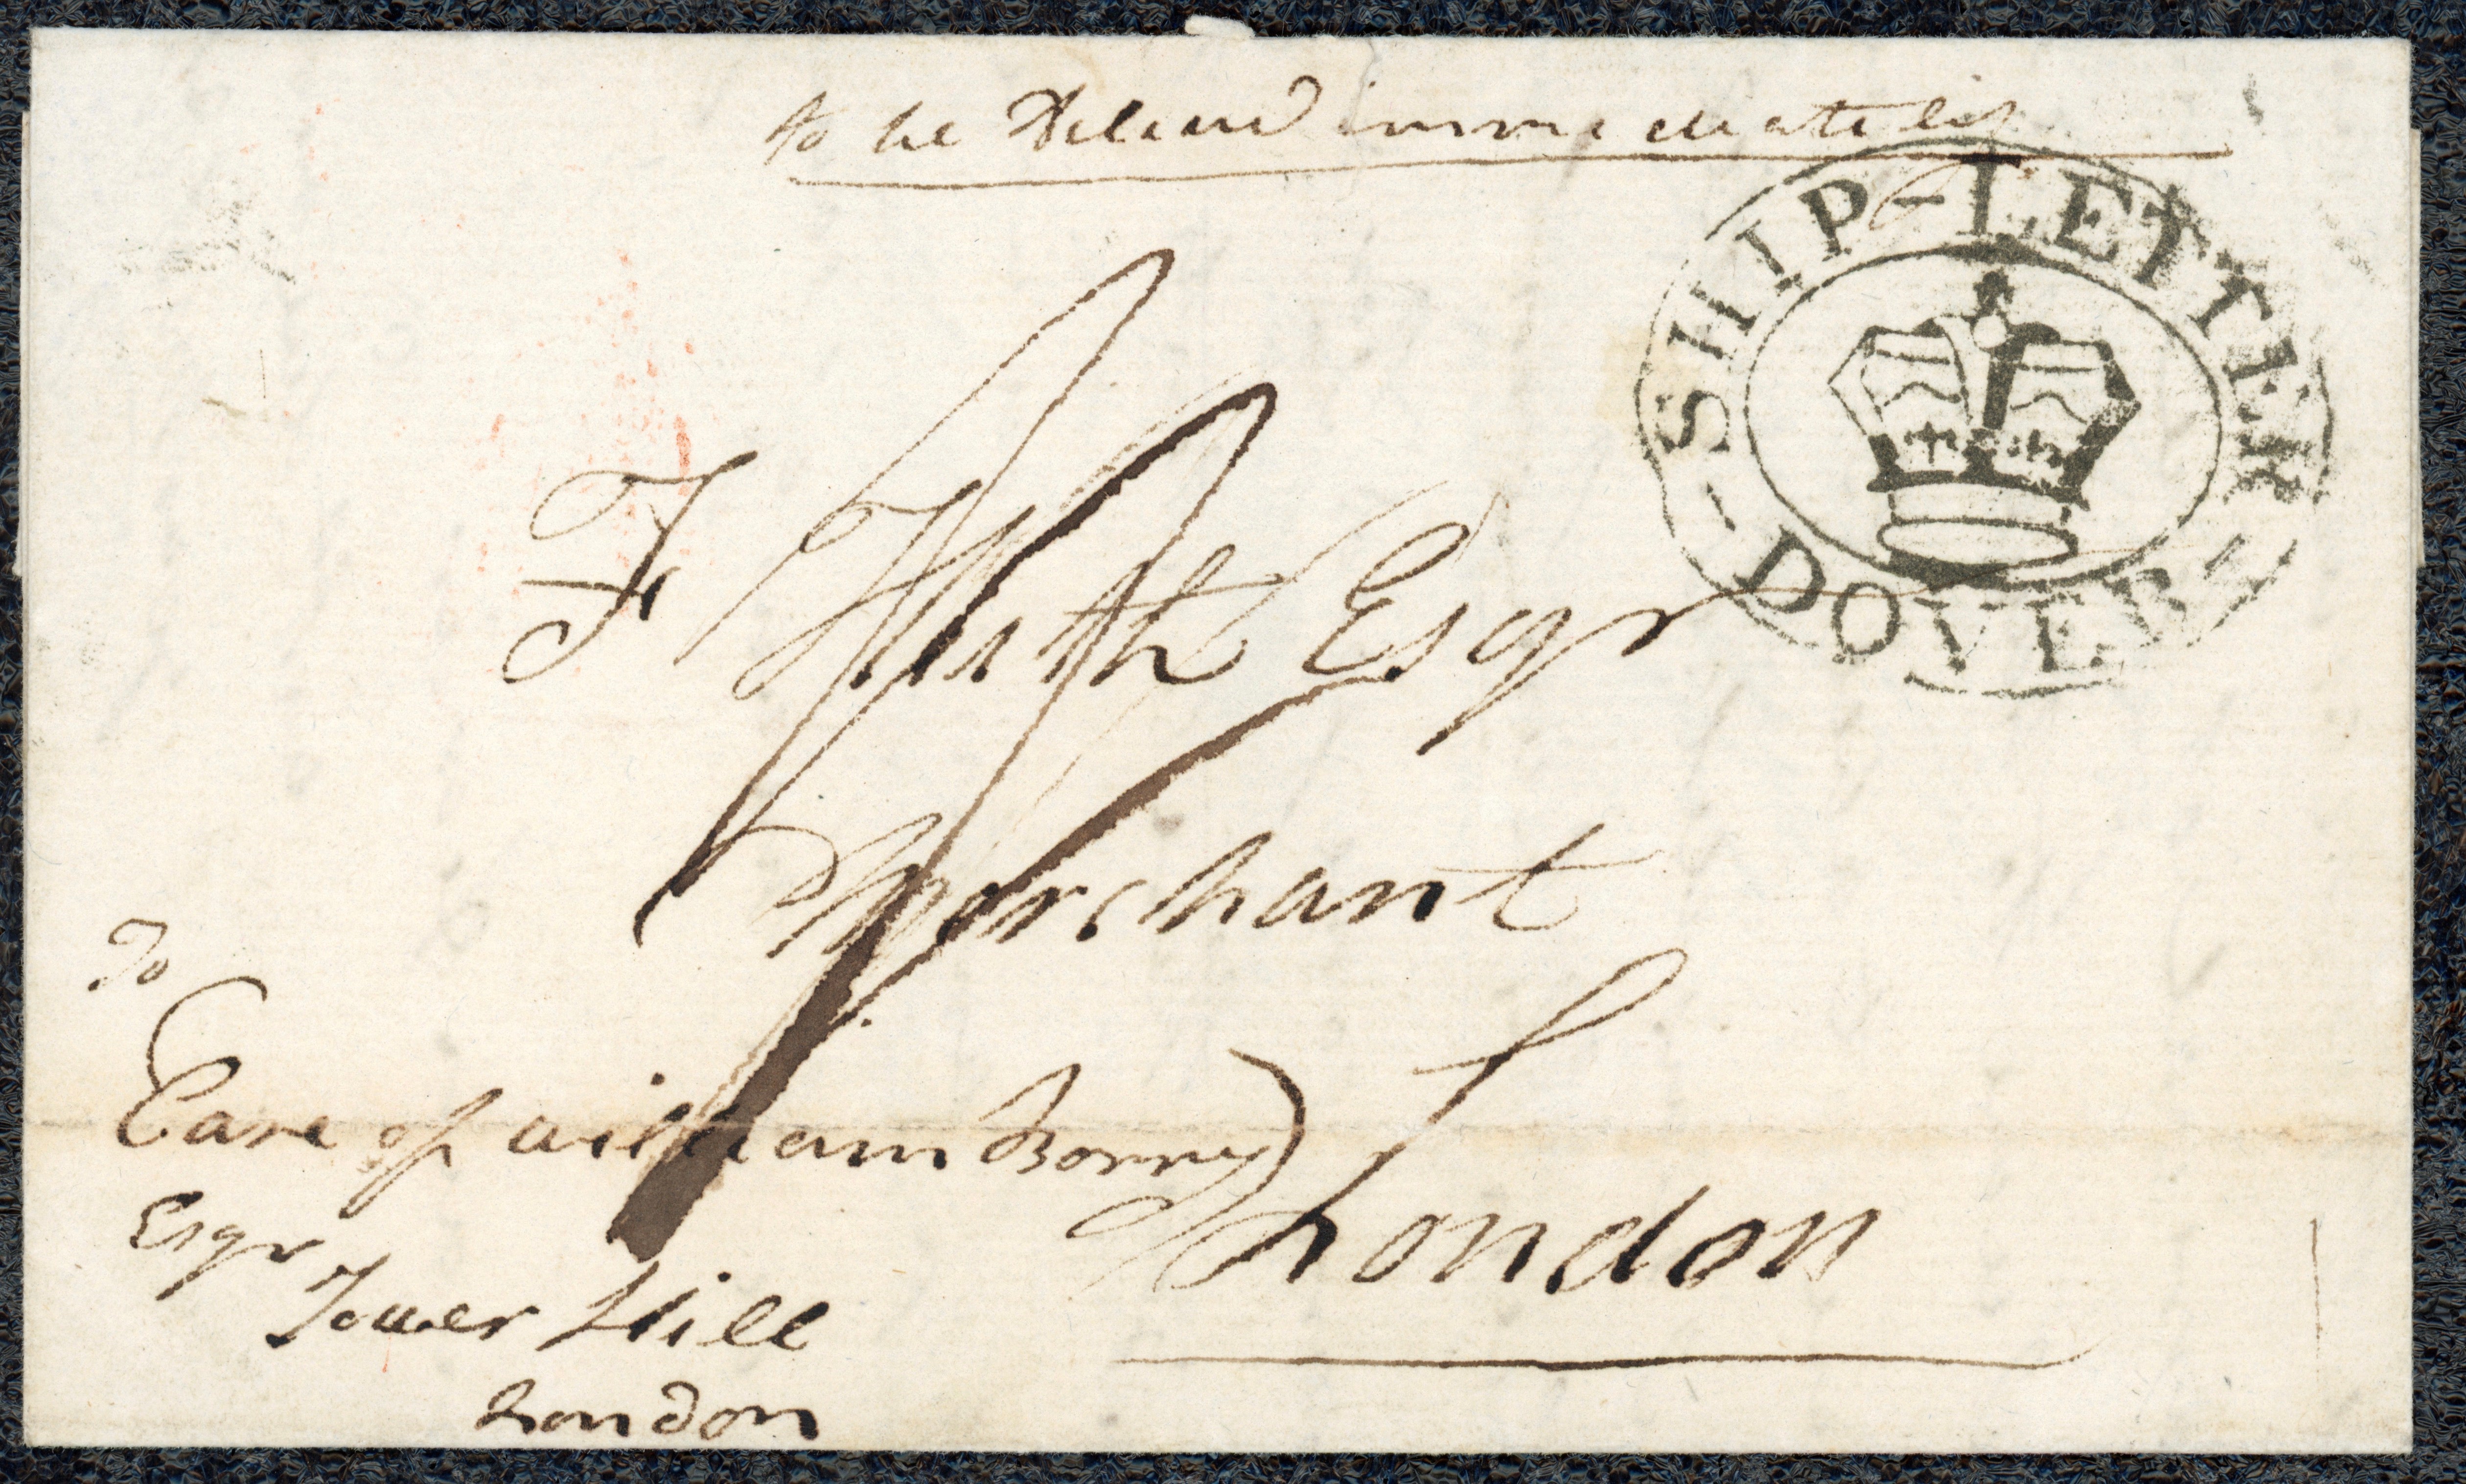 to be Deliverd immediately
SHIP-LETTER
DOVER
F Huth Esqr
Merchant
London
To
Care of william Borry
Esqr
Tower Hill
London